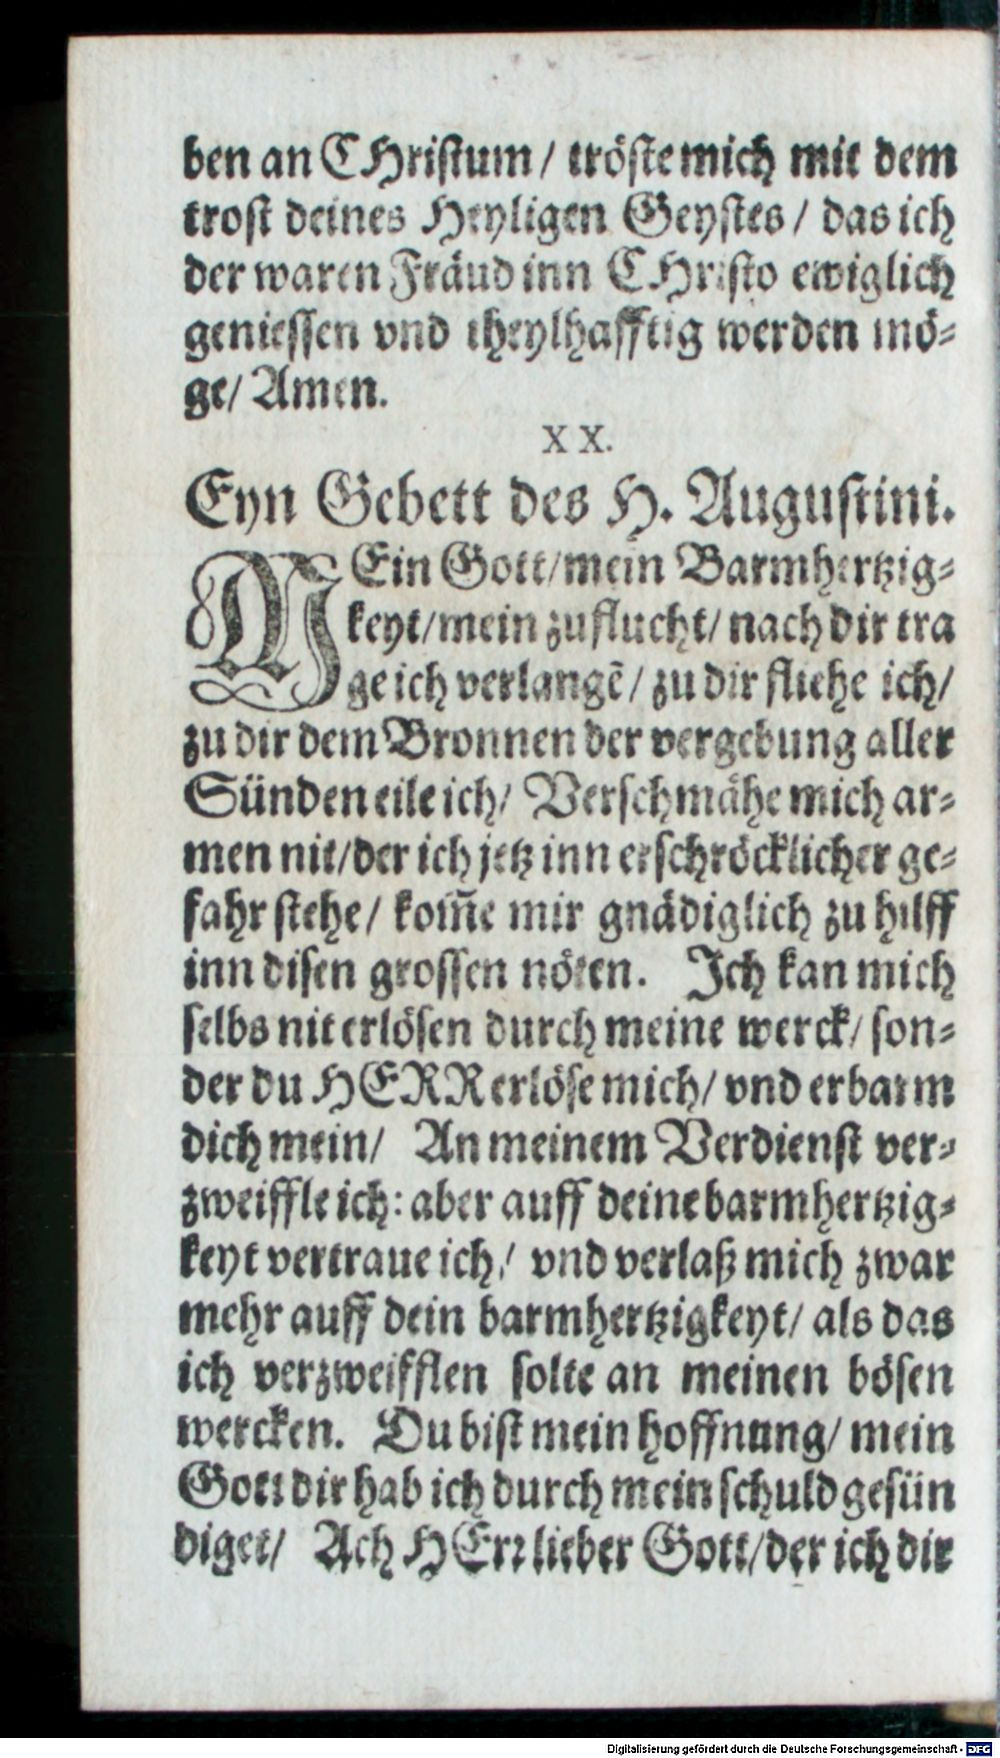 ben an CHristum / tröste mich mit dem
trost deines Heyligen Geystes / das ich
der waren Fräud inn CHristo ewiglich
geniessen vnd theylhafftig werden mö-
ge / Amen.
XX.
Eyn Gebett des H. Augustini.
MEin Gott / mein Barmhertzig-
keyt / mein zuflucht / nach dir tra
ge ich verlangē / zu dir fliehe ich /
zu dir dem Bronnen der vergebung aller
Sünden eile ich / Verschmähe mich ar-
men nit / der ich jetz inn erschröcklicher ge-
fahr stehe / kom̃e mir gnädiglich zu hilff
inn disen grossen nöten. Ich kan mich
selbs nit erlösen durch meine werck / son-
der du HERR erlöse mich / vnd erbarm
dich mein / An meinem Verdienst ver-
zweiffle ich: aber auff deine barmhertzig-
keyt vertraue ich / vnd verlaß mich zwar
mehr auff dein barmhertzigkeyt / als das
ich verzweifflen solte an meinen bösen
wercken. Du bist mein hoffnung / mein
Gott dir hab ich durch mein schuld gesün
diget / Ach HErr lieber Gott / der ich dir
Digitalisierung gefördert durch die Deutsche Forschungsgemeinschaft - DFG